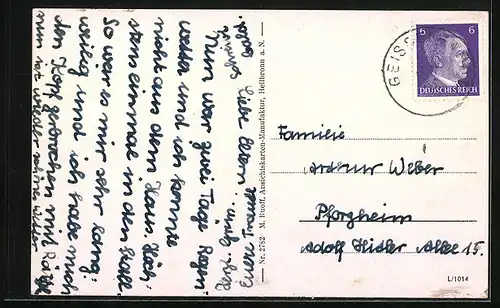 Liebe Eltern
Nun war zwei Tage Regen
wetter und ich konnte
nicht aus dem Haus. Höch
stens einmal in den Stall.
So war es mir sehr lang:
weilig und ich habe mich
den Kopf gebrochen mit Rät
nun ist wieder schönes Wetter
Nr. 2782 M. Ruoff, Ansichtskarten-Manufaktur, Heilbronn a. N.
GEIS
6 6
DEUTSCHES REICH
Familie
Weber
Pforzheim
Adolf Hitler Allee 15.
L/1014